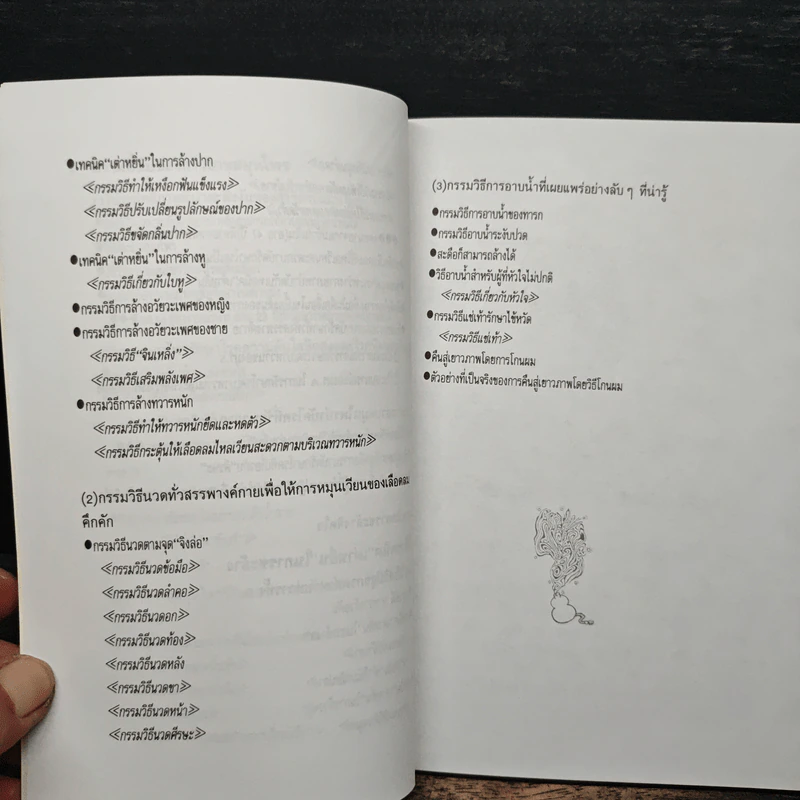 ●เทคนิค“เต๋าหยิ่น”ในการล้างปาก
≪กรรมวิธีทำให้เหงือกฟันแข็งแรง≫
≪กรรมวิธีปรับเปลี่ยนรูปลักษณ์ของปาก≫
≪กรรมวิธีขจัดกลิ่นปาก≫
●เทคนิค“เต๋าหยิ่น”ในการล้างหู
≪กรรมวิธีเกี่ยวกับใบหู≫
●กรรมวิธีการล้างอวัยวะเพศของหญิง
●กรรมวิธีการล้างอวัยวะเพศของชาย
≪กรรมวิธี“จินเหลิ่ง”≫
≪กรรมวิธีเสริมพลังเพศ≫
●กรรมวิธีการล้างทวารหนัก
≪กรรมวิธีทำให้ทวารหนักยืดและหดตัว≫
≪กรรมวิธีกระตุ้นให้เลือดลมไหลเวียนสะดวกตามบริเวณทวารหนัก≫
(2)กรรมวิธีนวดทั่วสรรพางค์กายเพื่อให้การหมุนเวียนของเลือดลม
คึกคัก
●กรรมวิธีนวดตามจุด“จิงล่อ”
≪กรรมวิธีนวดข้อมือ≫
≪กรรมวิธีนวดลำคอ≫
≪กรรมวิธีนวดอก≫
≪กรรมวิธีนวดท้อง≫
≪กรรมวิธีนวดหลัง
≪กรรมวิธีนวดขา≫
≪กรรมวิธีนวดหน้า≫
≪กรรมวิธีนวดศีรษะ≫
(3)กรรมวิธีการอาบน้ำที่เผยแพร่อย่างลับ ๆ ที่น่ารู้
●กรรมวิธีการอาบน้ำของทารก
●กรรมวิธีอาบน้ำระงับปวด
●สะดือก็สามารถล้างได้
●วิธีอาบน้ำสำหรับผู้ที่หัวใจไม่ปกติ
≪กรรมวิธีเกี่ยวกับหัวใจ≫
●กรรมวิธีแช่เท้ารักษาไข้หวัด
≪กรรมวิธีแช่เท้า≫
●คืนสู่เยาวภาพโดยการโกนผม
●ตัวอย่างที่เป็นจริงของการคืนสู่เยาวภาพโดยวิธีโกนผม